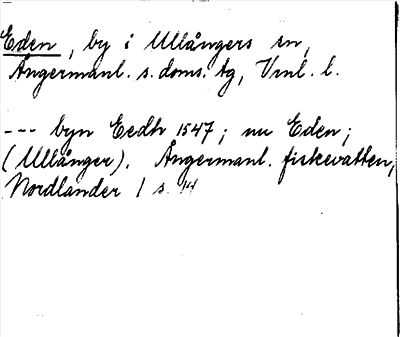 Eden, by i Ullångers sn,
Ångermanl. s. doms. tg, Vrnl. l.
--- byn Eedh 1547; nu Eden;
(Ullånger). Ångermanl. fiskevatten,
Nordlander 1 s. 14